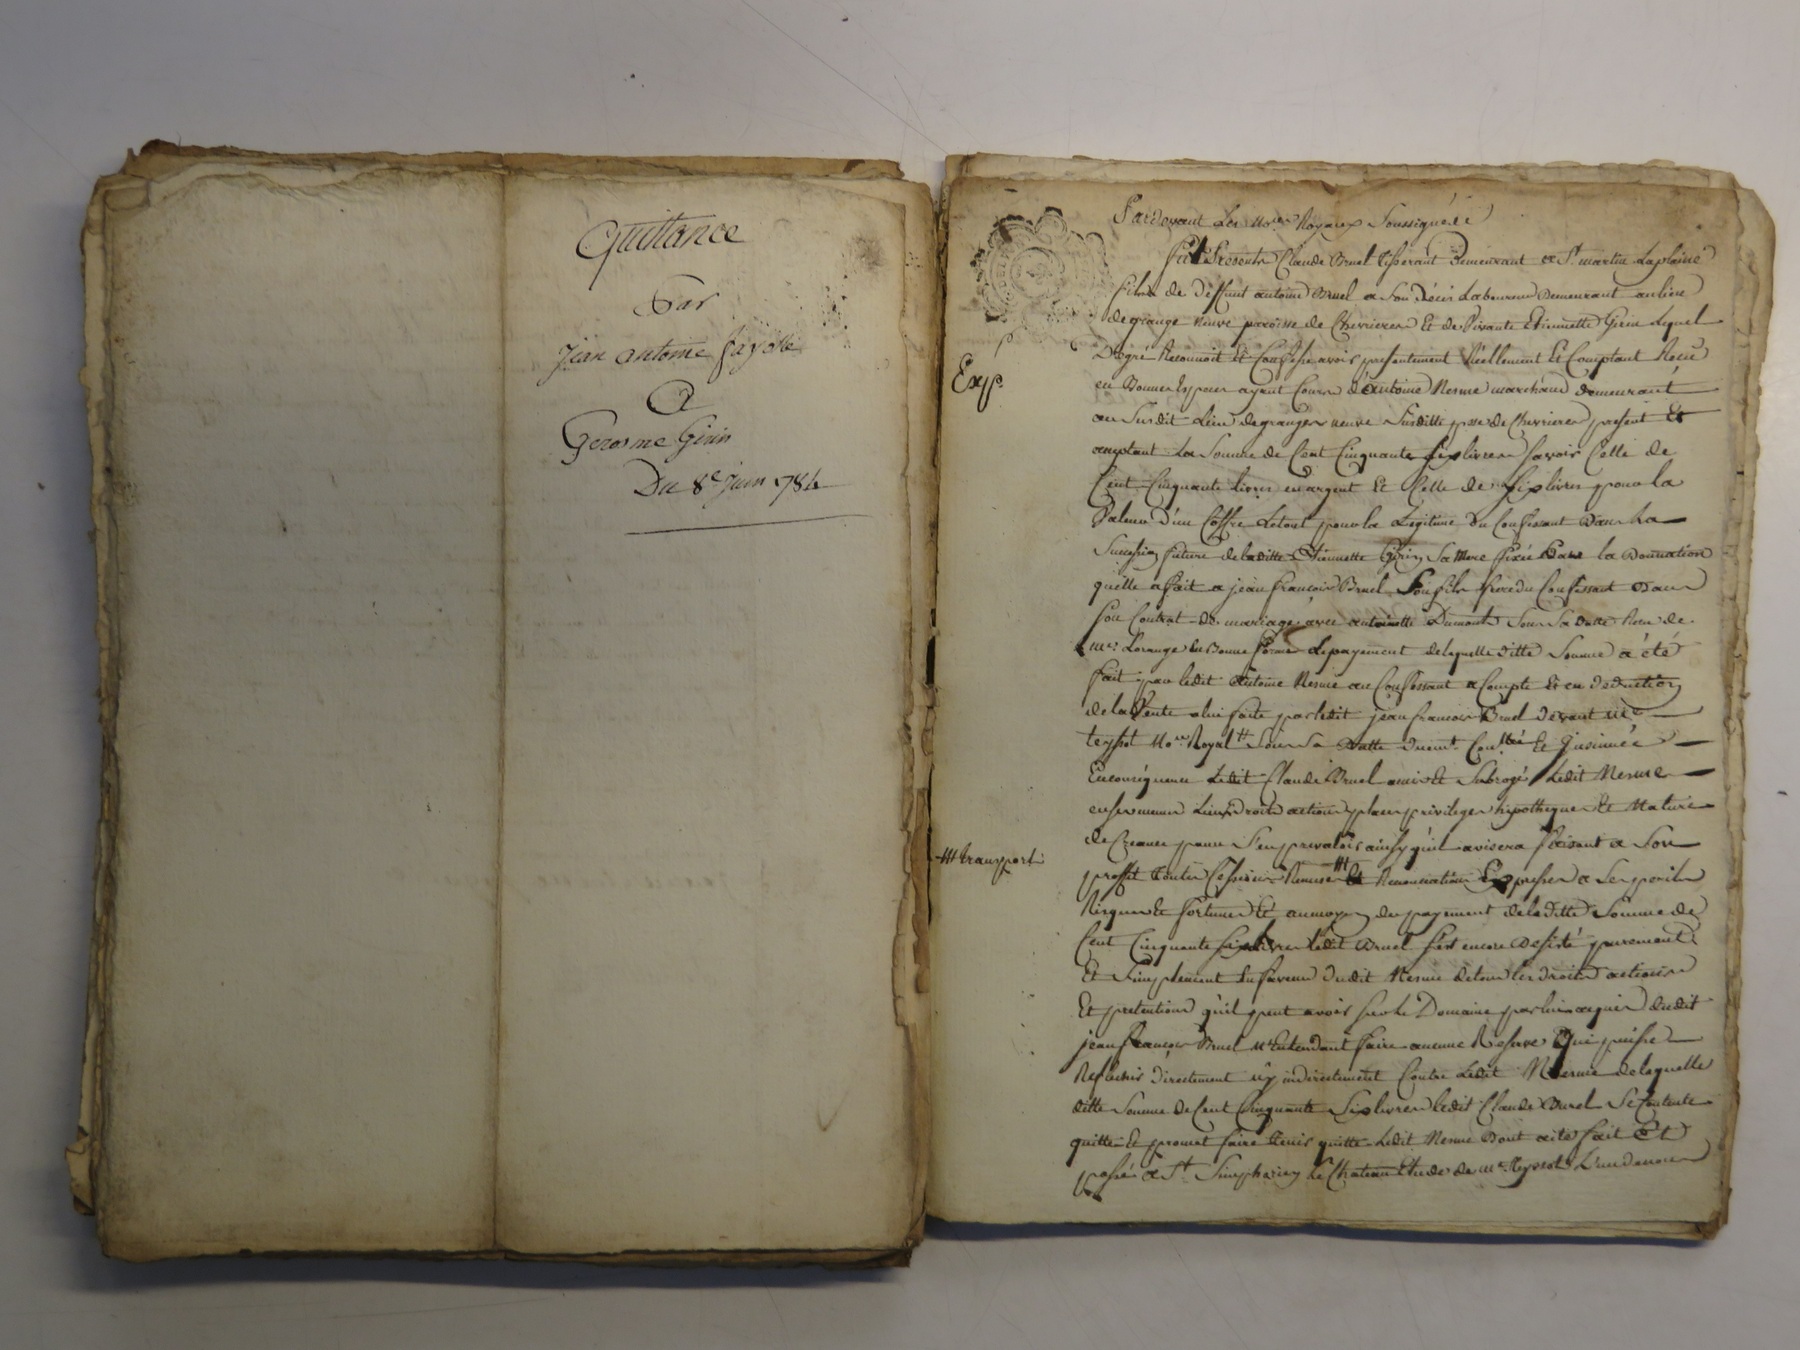 Quittance
Par
Jean antoine fayolle
A
Gerosme Girin
Du 8e juin 784
Pardevant Les Nores Royaux Soussignés
fut Presents Claude Bruel tisserant Demeurant a St martin Laplaine
fils de Deffunt antoine Bruel a Son Déces Laboureur Demeurant au lieu
de grange neuve paroisse de Chevrieres Et de Vivante Etiennette Girin Lequel
Degré Reconnoit Et Confesse avoir presentement Réellement Et Comptant Reçu
Exp.
en Bonnes Especes ayant Cours d'antoine Nesme marchand demeurant
au Susdit Lieu de granges neuve Susditte psse de Chevrieres present Et
acceptant La Somme de Cent Cinquante six livres savoir Celle de
Cent Cinquante livres en argent Et Celle de six livres pour la
Valeur D'un Coffre Letout pour la Legitime du Confessant Dans La
Succession future de laditte Etiennette Girin Sa Mere fixée Dans la Donnation
qu'elle a fait a jean francois Bruel Son fils frere du Confessant Dans
son Contrat de mariage avec antoinette Dumont Sous Sa Datte Recu de
Me Lorange en Bonne forme Le payement de laquelle ditte Somme a été
fait par ledit antoine Nesme au Confessant a Compte Et en Deduction
de la Vente a lui faite par ledit jean francois Bruel devant Me
teyssot Nore Royal Sous Sa Datte Et Insinuée
En conséquence Ledit Claude Bruel a mis Et Subrogé Ledit Nesme
en ses mesmes Lieux Droits actions places privileges hipotheques Et Nature
de Creance pour S'en prevaloir ainsy qu'il avisera faisant a Son
+++ transport
proffit toutes Cessions Remises +++ Et Renonciations Expresses a Ses perils
Risques Et fortunes Et au moyen du payement de laditte Somme de
Cent Cinquante six livres ledit Bruel s'est encore Desisté purement
Et Simplement En faveur dudit Nesme de tous les droits actions
Et pretentions qu'il peut avoir sur Le Domaine par lui acquis dudit
jean francois Bruel N'Entendant faire aucune Reserve Qui puisse
Reflechir directement ny indirectement Contre Ledit Nesme de laquelle
ditte Somme de Cent Cinquante Six livres ledit Claude Bruel Se Contente
quitte Et promet faire tenir quitte Ledit Nesme Dont acte fait Et
passé a St Simphorien Le Chateau Etude de Me teyssot L'un de nous